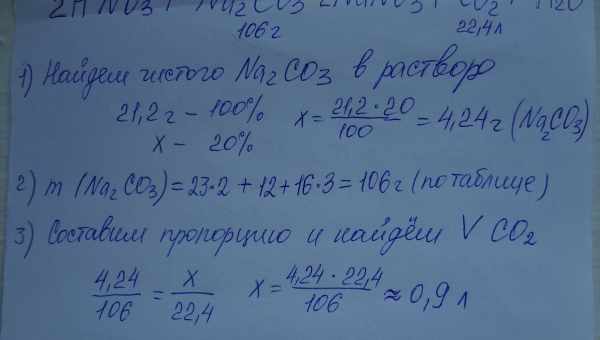 2HNO3 + Na2CO3 2NaNO3 + CO2 + H2O
106г 22,4л
1) Найдем чистого Na2CO3 в растворе
21,2г – 100% x = 21,2·20/100 = 4,24г (Na2CO3)
x – 20%
2) m (Na2CO3) = 23·2 + 12 + 16·3 = 106г (по таблице)
3) Составим пропорцию и найдём V CO2
4,24/106 = x/22,4 x = 4,24·22,4/106 ≈ 0,9 л